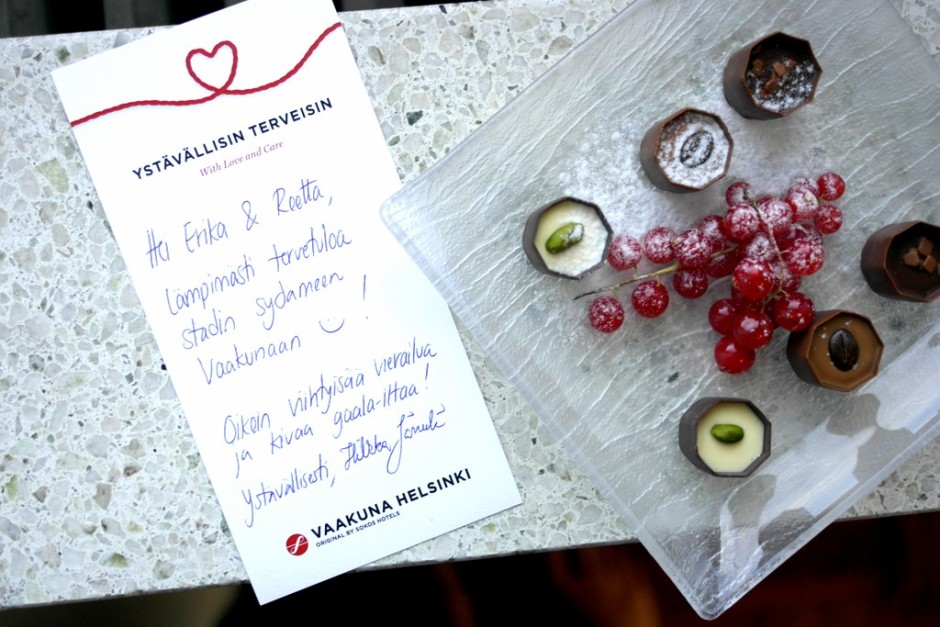 YSTÄVÄLLISIN TERVEISIN
With Love and Care
Hei Erika & Reetta,
Lämpimästi tervetuloa
stadin sydämeen
Vaakunaan !
Oikein viihtyisää vierailua
ja kivaa gaala-iltaa!
Ystävällisesti,
VAAKUNA HELSINKI
ORIGINAL BY SOKOS HOTELS